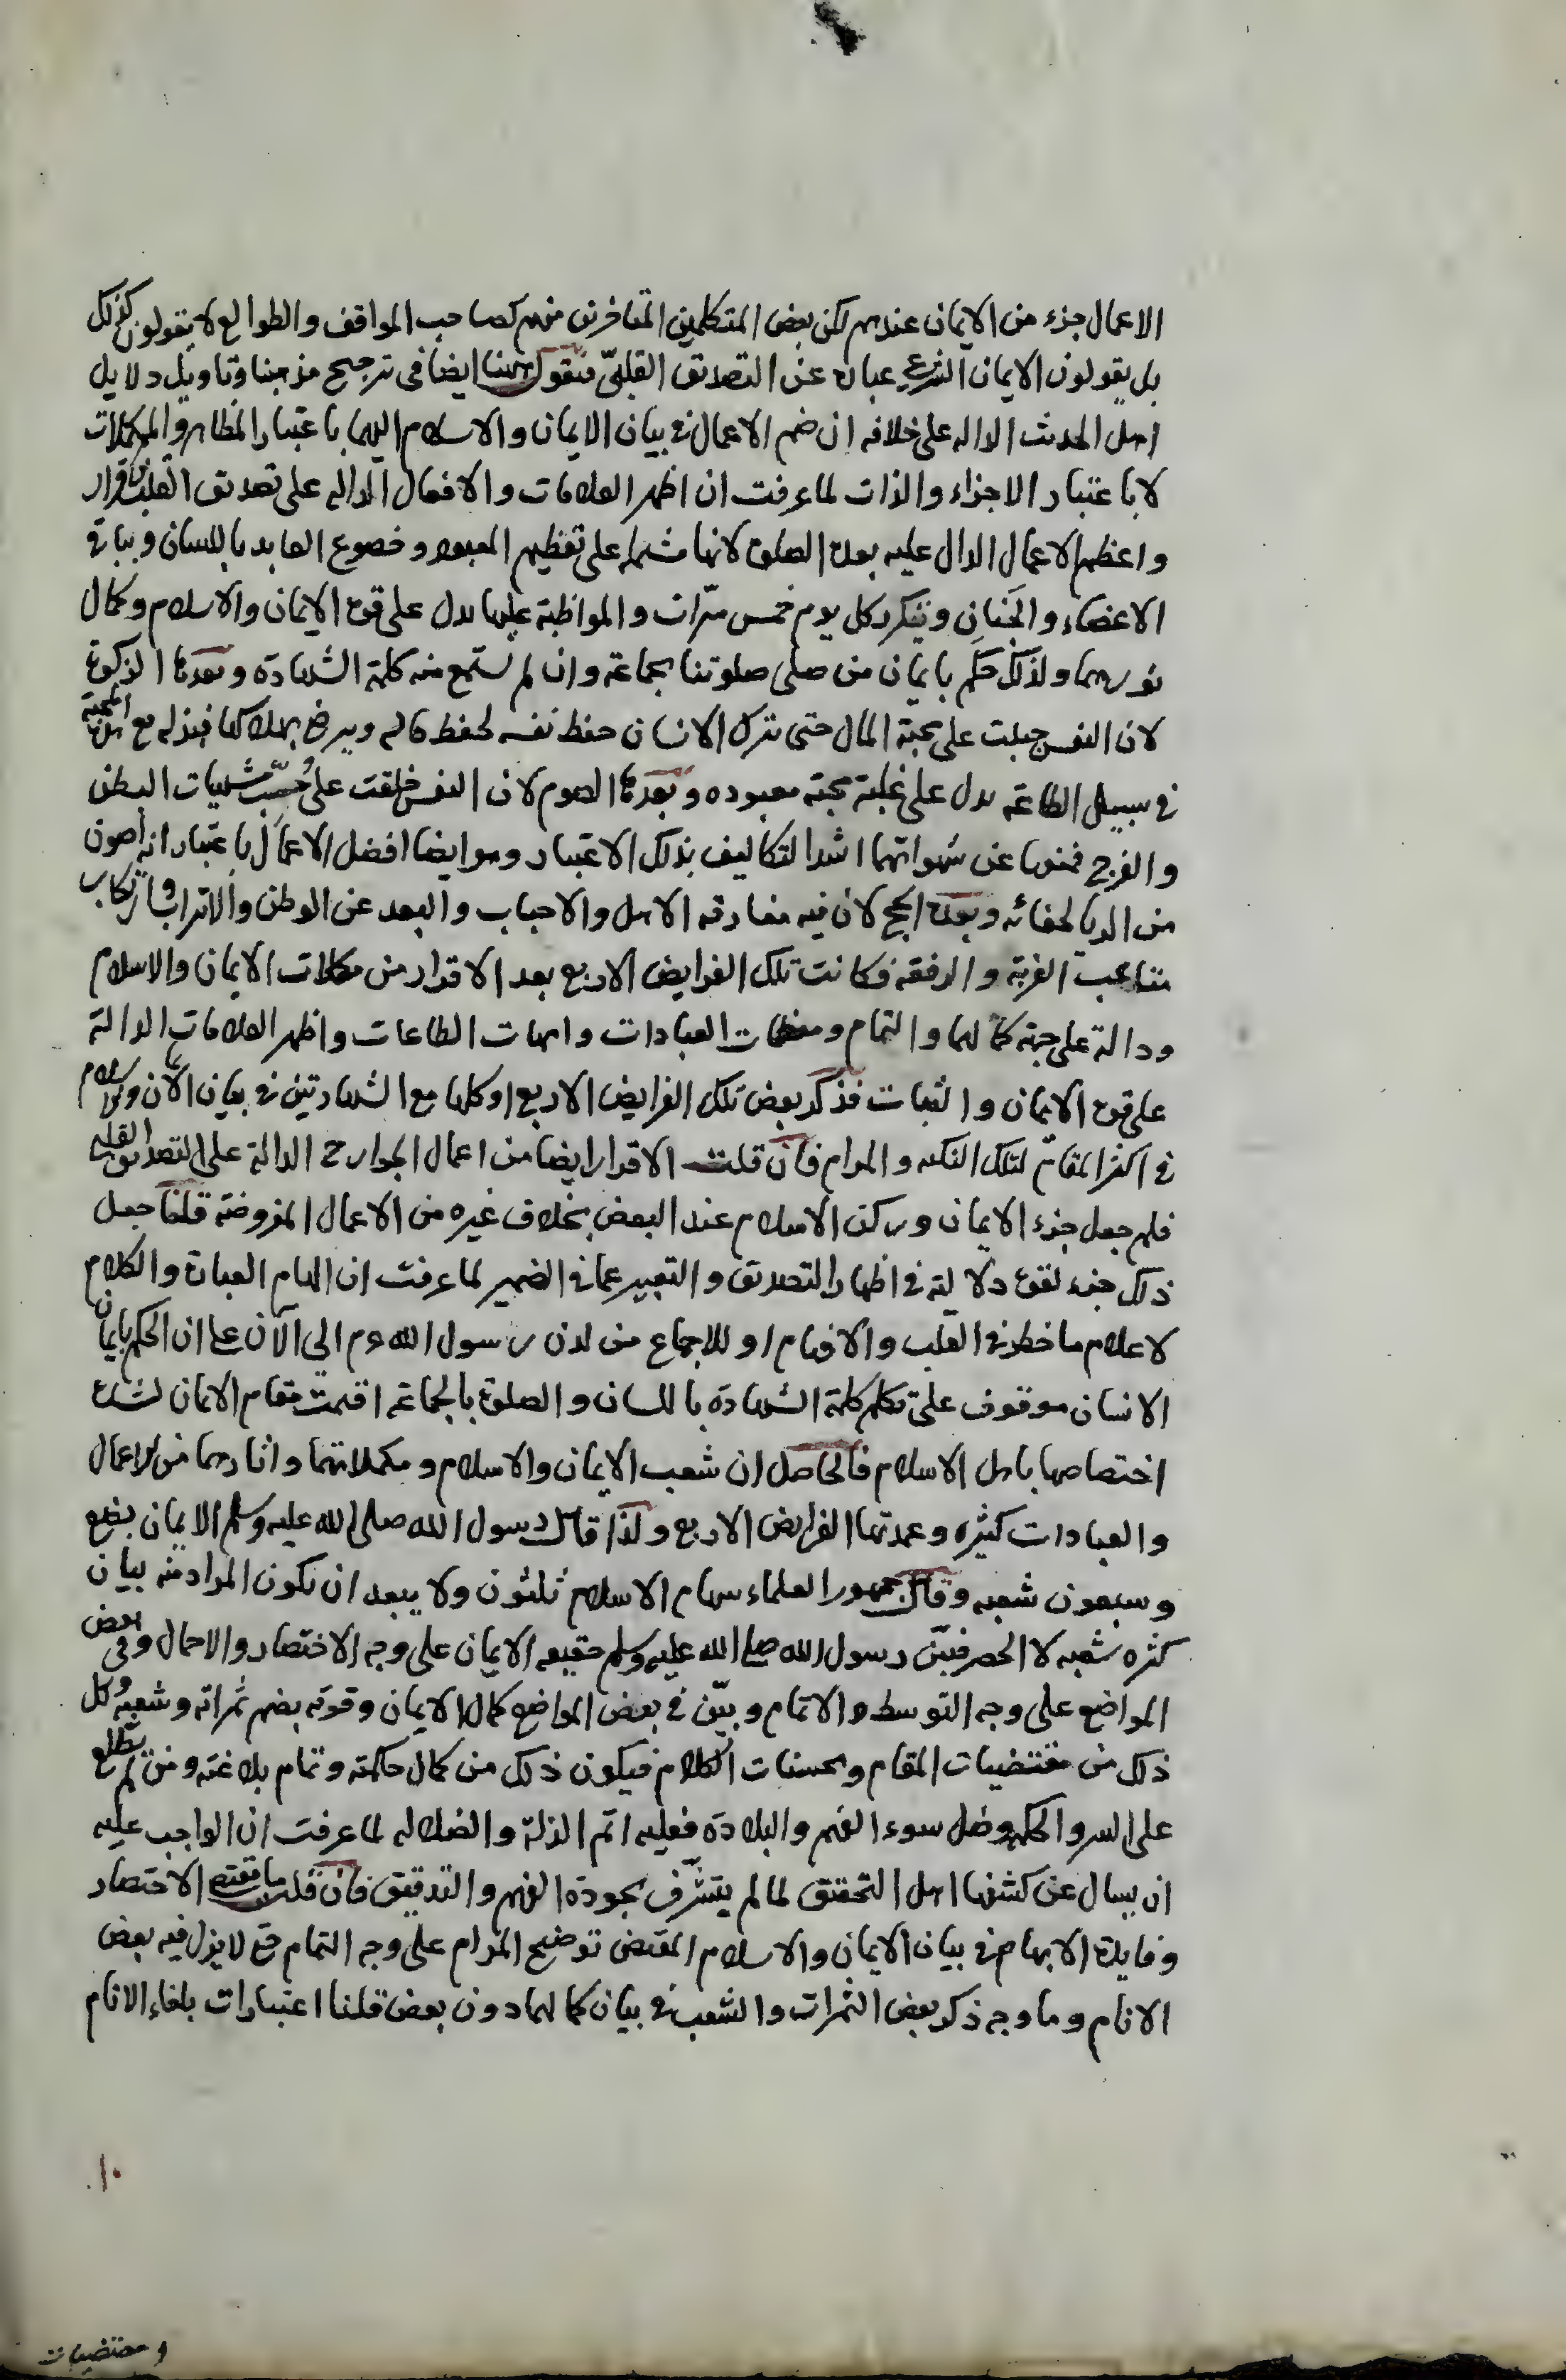 الاعمال جزء من الايمان عندهم لكن بعض المتكلمين المتاخرين منهم كصاحب المواقف والطوالع لا يقولون كذلك
بل يقولون الايمان الشرعي عبارة عن التصديق القلبيّ فنقول ههنا ايضا في ترجيح مذهبنا وتاويل دلايل
اهل الحديث الداله على خلافه ان ضم الاعمال في بيان الايمان والاسلام اليهما باعتبار المظاهر والمكملات
لا باعتبار الاجزاء والذات لما عرفت ان اظهر العلامات والافعال الداله على تصديق القلب اقرار
واعظم الاعمال الدال عليه بعده الصلوة لانها مشتملة على تعظيم المعبود وخضوع العابد باللسان وبباقي
الاعضاء والجَنانِ ويتكرر كل يوم خمس مرّات والمواظبة عليها يدل على قوة الايمان والاسلام وكمال
نورهما ولذلك حكم بايمان من صلى صلوتنا بجماعة وان لم نستمع منه كلمة الشهادة وبعدها الزكوة
لان النفس جبلت على محبة المال حتى يترك الانسان حفظ نفسه لحفظ ماله ويرضى بهلاكها فبذله مع المحبة
في سبيل الطاعة يدل على غلبة محبة معبوده وبعدها الصوم لان النفس خلقت على حُبِّ مشتهيات البطن
والفرج فمنعها عن شهواتهما اشد التكاليف بذلك الاعتبار وهو ايضا افضل الاعمال باعتبار انه اصون
من الريا لخفائه وبعده الحج لان فيه مفارقه الاهل والاحباب والبعد عن الوطن والاتراب وارتكاب
متاعب الغربة والرفقه فكانت تلك الفرايض الاربع بعد الاقرار من مكملات الايمان والاسلام
ودالة على جهة كمالهما والتمام ومعظمات العبادات وامهات الطاعات واظهر العلامات الدالة
على قوة الايمان والثبات فذكر بعض تلك الفرايض الاربع او كلها مع الشهادتين في بيان الايمان والاسلام
في اكثر المقام لتلك النكته والمرام فان قلت الاقرار ايضا من اعمال الجوارح الدالة على التصديق القلبي
فلم جعل جزء الايمان وركن الاسلام عند البعض بخلاف غيره من الاعمال المفروضة قلنا جعل
ذلك جزء لقوة دلالته في اظهار التصديق والتعبير عما في الضمير لما عرفت ان الهام العبارة والكلام
لاعلام ما خطر في القلب والافهام او للاجماع من لدن رسول الله عم الى الآن على ان الحكم بايمان
الانسان موقوف على تكلم كلمة الشهادة باللسان والصلوة بالجماعة اقيمت مقام الايمان لشدة
اختصاصها باهل الاسلام فالحاصل ان شعب الايمان والاسلام ومكملاتهما واثارهما من الاعمال
والعبادات كثيره وعمدتها الفرايض الاربع ولذا قال رسول الله صلى الله عليه وسلم الايمان بضع
وسبعون شعبه وقال جمهور العلماء سهام الاسلام ثلثون ولا يبعد ان يكون المراد منه بيان
كثره شعبه لا الحصر فبيّن رسول الله صلى الله عليه وسلم حقيقه الايمان على وجه الاختصار والاجمال وفي بعض
المواضع على وجه التوسط والاتمام وبيّن في بعض المواضع كمال الايمان وقوته بضم ثمراته وشعبه وكل
ذلك من مقتضيات المقام ومحسنات الكلام فيكون ذلك من كمال حكمته وتمام بلاغته ومن لم يطلع
على السر والحكم وضل سوء الفهم والبلادة فعليه اثم الزلة والضلاله لما عرفت ان الواجب عليه
ان يسال عن كشفها اهل التحقيق لما لم يتشرّف بجودة الفهم والتدقيق فان قلت ما مقتضى الاختصار
وفايدة الابهام في بيان الايمان والاسلام المقتضي توضيح المرام على وجه التمام حتى لا يزل فيه بعض
الانام وما وجه ذكر بعض الثمرات والشعب في بيان كمالهما دون بعض قلنا اعتبارات بلغاء الانام
١٠
ومقتضيات